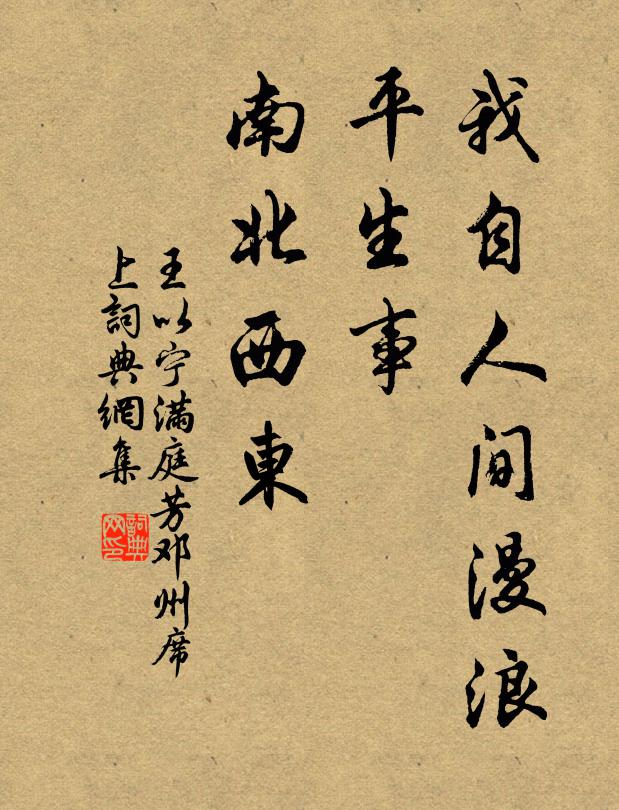 我自人间漫浪
平生事
南北西東
王以宁满庭芳邓州席
上詞典網集
詞典
网印